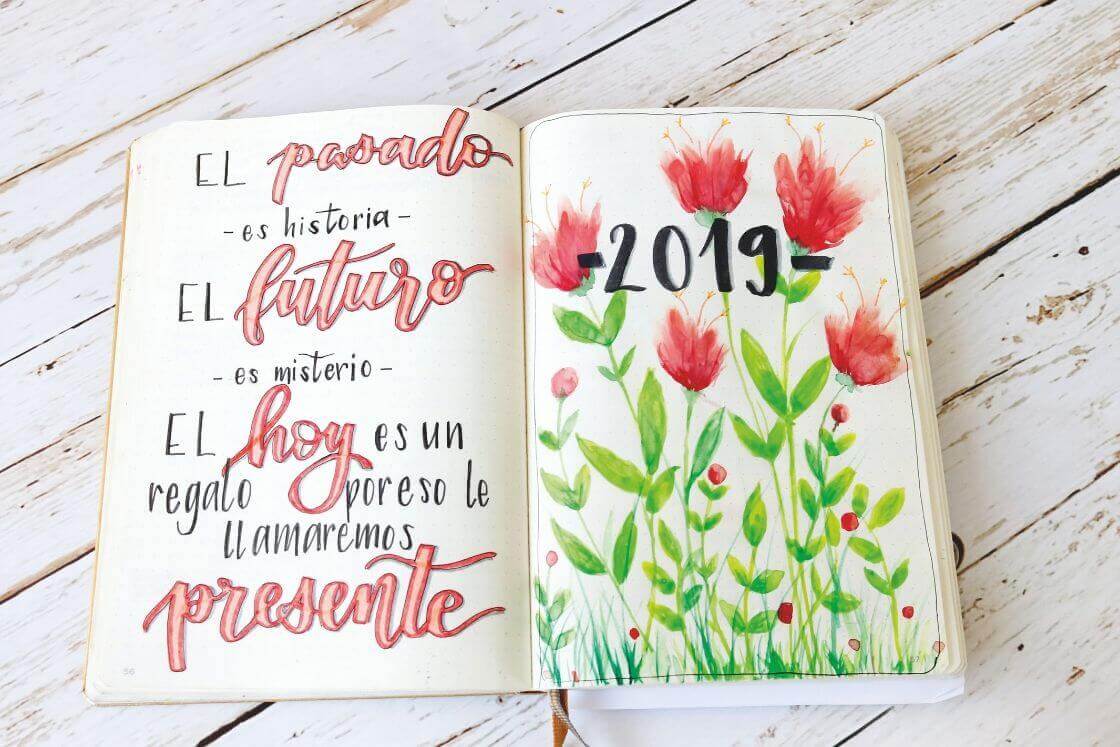 EL pasado
- es historia -
EL futuro
- es misterio -
EL hoy es un
regalo por eso le
llamaremos
presente
56
-2019-
57